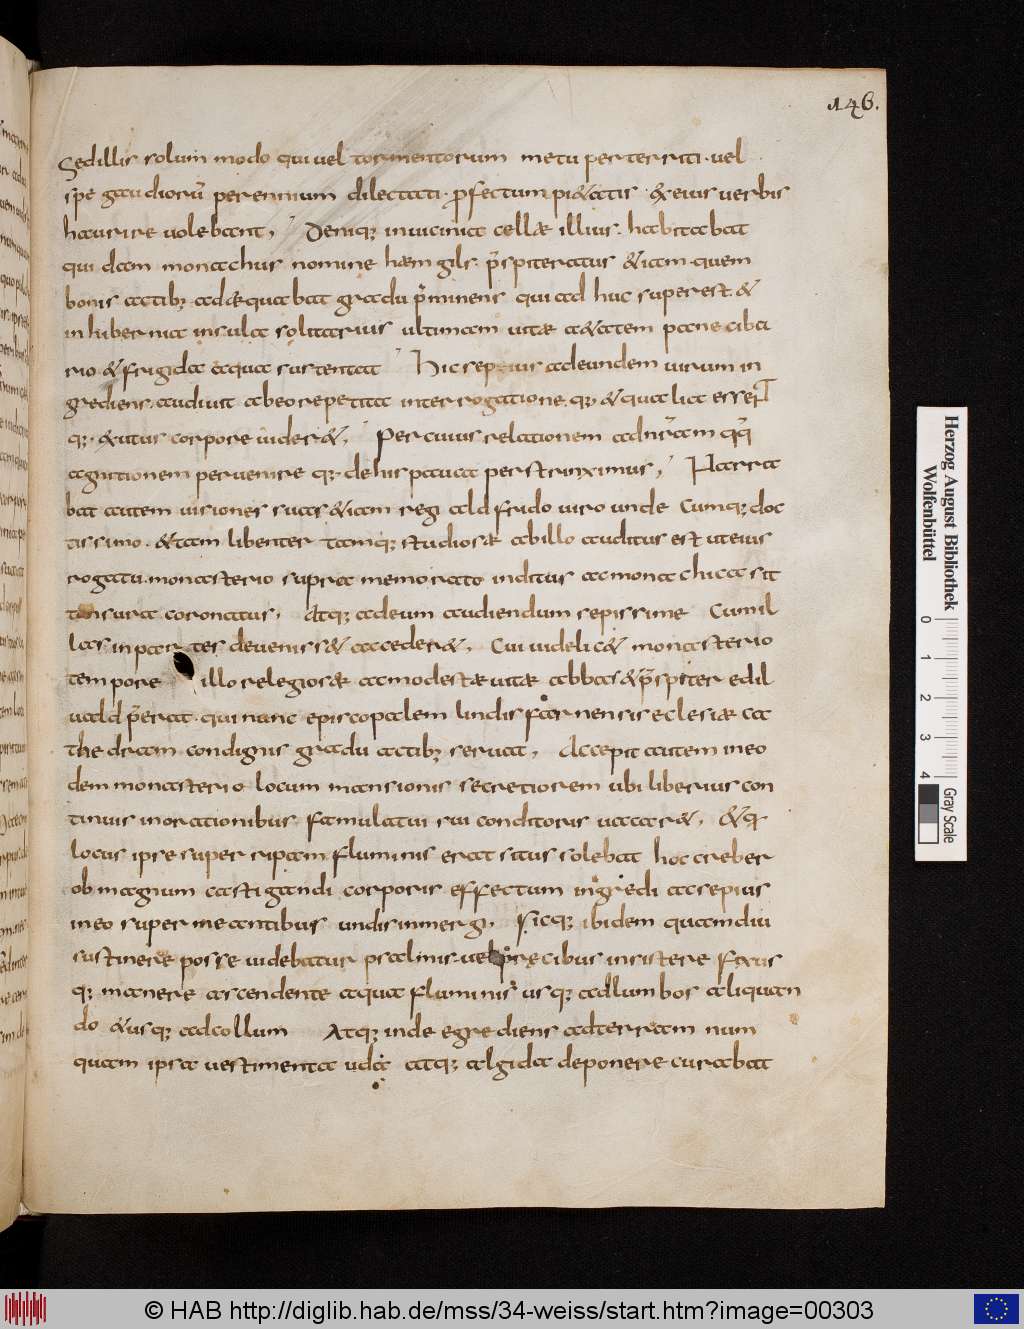 146.
Sedillis solum modo qui uel tormentorum metu perterriti · uel
spe gaudiorū perennium dilectati · ꝓfectum pi&atis · & eius uerbis
haurire uolebant, Deniq; inuicinia cellæ illius · habitabat
qui dam monachus nomine hæmgils · p̄spiteratus &iam · quem
bonis actib; adæquabat gradu p̄minens qui ad huc superest &
in hibernia insula solitarius ultimam uitæ a&atem pane ciba
rio & frigida aqua sustentat Hic sepius adeundem uirum in
grediens audiuit abeo repetita interrogatione q; & qualia essent
q; exutus corpore uider&, Per cuius relationem adnr̄am qq̄
agnitionem peruenire q; de his pauca perstrinximus, Narra
bat autem uisiones suas &iam regi aldfrido uiro unde Cumq; doc
tissimo · &tam libenter tamq; studiosæ abillo auditus est uteius
rogatu monasterio supra memorato inditus ac monachica sit
tonsura coronatus, Atq; adeum audiendum sepissime Cumil
las in partes deueniss& acceder&, Cui uidelic& monasterio
tempore illo relegiosæ acmodestæ uitæ abbas & p̄spiter edil
uald p̄erat · qui nunc episcopalem lindisfarnensis eclesiæ ca
thedram condignis gradu actib; seruat, Accepit autem ineo
dem monasterio locum mansionis secretiorem ubi liberius con
tinuis inorationibus famulatui sui conditoris uacar&, &q̄
locus ipse super ripam fluminis erat situs solebat hoc creber
ob magnum castigandi corporis effectum ingredi acsepius
ineo supermeantibus undis inmergi, sicq; ibidem quamdiu
sustinere posse uidebatur psalmis uel precibus insistere fixus
q; manere ascendente aqua fluminis usq; adlumbos aliquan
do &usq; adcollum Atq; inde egrediens adterram num
quam ipsa uestimenta uda atq; algida deponere curabat
Herzog August Bibliothek
Wolfenbüttel
0 1 2 3 4
Gray Scale
© HAB http://diglib.hab.de/mss/34-weiss/start.htm?image=00303